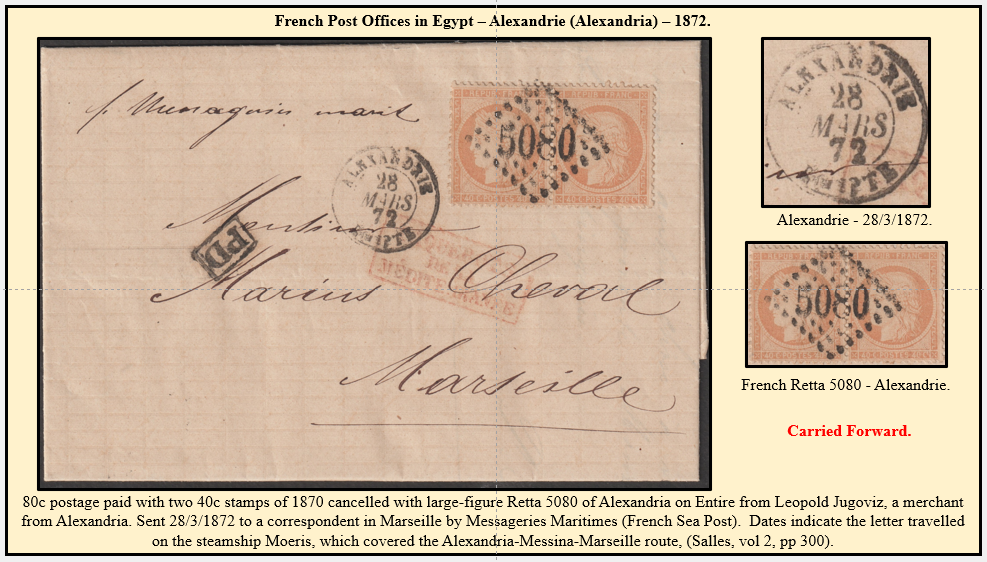 French Post Offices in Egypt – Alexandrie (Alexandria) – 1872.
p. Messageries marit
REPUB · FRANC
REPUB · FRANC
5080
40 · C · POSTES · 40 · C
40 · C · POSTES · 40 · C
ALEXANDRIE
28
MARS
72
Monsieur
PD
MÉDITERRANÉE
Marius Cheval
Marseille
ALEXANDRIE
28
MARS
72
Alexandrie - 28/3/1872.
REPUB · FRANC
REPUB · FRANC
5080
40 · C · POSTES · 40 · C
40 · C · POSTES · 40 · C
French Retta 5080 - Alexandrie.
Carried Forward.
80c postage paid with two 40c stamps of 1870 cancelled with large-figure Retta 5080 of Alexandria on Entire from Leopold Jugoviz, a merchant
from Alexandria. Sent 28/3/1872 to a correspondent in Marseille by Messageries Maritimes (French Sea Post).  Dates indicate the letter travelled
on the steamship Moeris, which covered the Alexandria-Messina-Marseille route, (Salles, vol 2, pp 300).